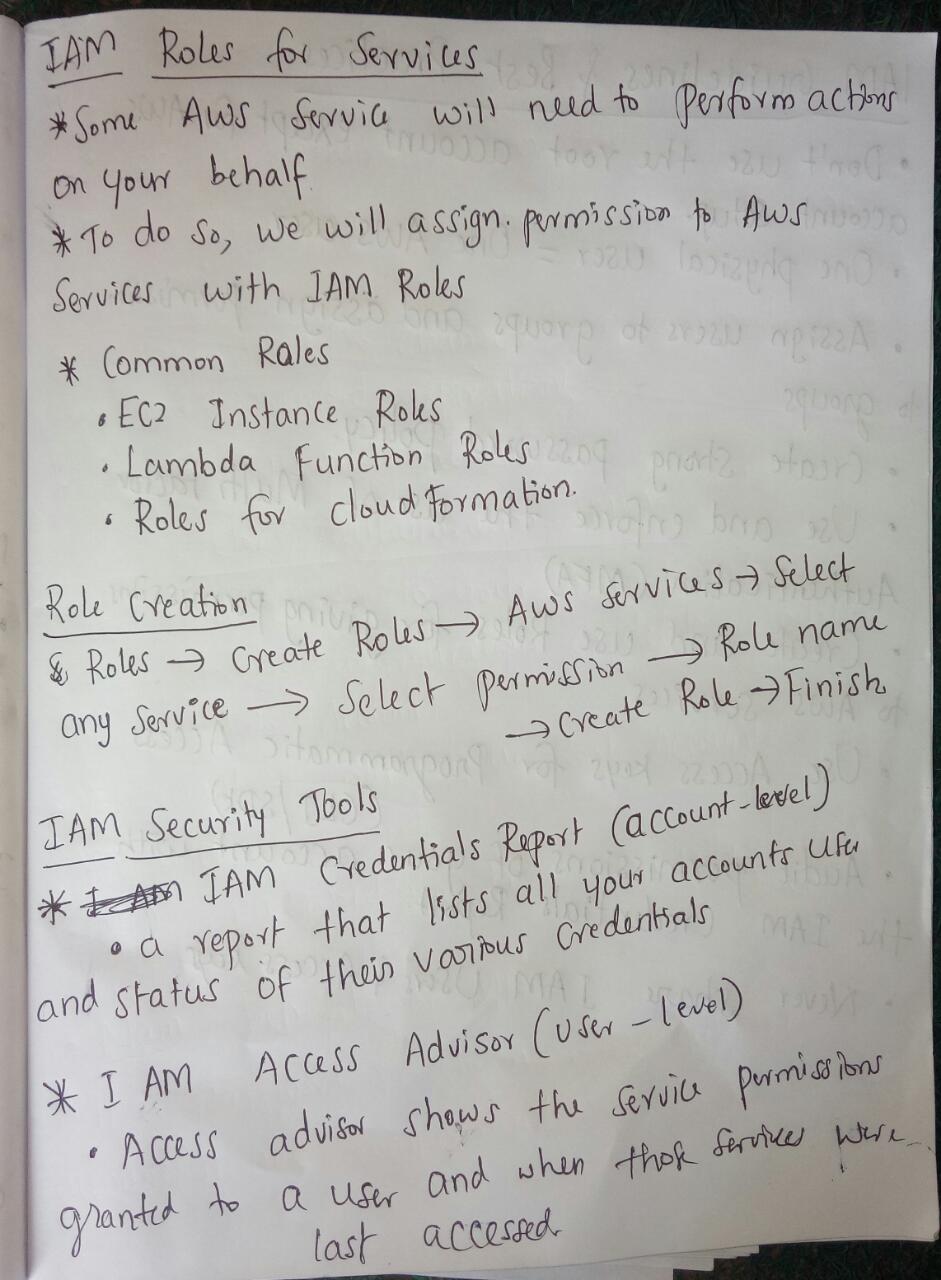 IAM Roles for Services
* Some AWS Service will need to perform actions
on your behalf
* To do so, we will assign. permission to AWS
Services with IAM Roles
* Common Roles
• EC2 Instance Roles
• Lambda Function Roles
• Roles for cloud Formation.
Role Creation
Roles → Create Roles → AWS Services → Select
any Service → Select permission → Role name
→ Create Role → Finish
IAM Security Tools
* IAM Credentials Report (account-level)
• a report that lists all your accounts user
and status of their various credentials
* IAM Access Advisor (user-level)
• Access advisor shows the service permissions
granted to a user and when those services were
last accessed